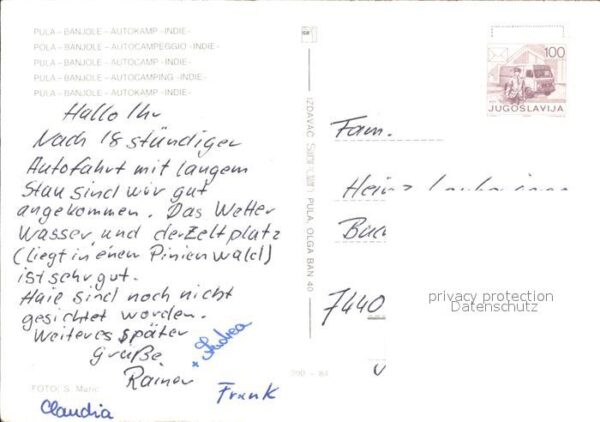 PULA – BANJOLE – AUTOKAMP -INDIE-
POLA – BANJOLE – AUTOCAMPEGGIO -INDIE-
PULA – BANJOLE – AUTOCAMP -INDIE-
PULA – BANJOLE – AUTOCAMPING -INDIE-
PULA – BANJOLE – AUTOKAMP -INDIE-
Hallo Ihr
Nach 18 stündiger
Autofahrt mit langem
Stau sind wir gut
angekommen. Das Wetter
Wasser, und der Zeltplatz
(liegt in einem Pinienwald)
ist sehr gut.
Haie sind noch nicht
gesichtet worden.
Weiteres später
Grüße
Rainer
+ Andrea
Frank
Claudia
FOTO: S. Marić
IZDAVAČ PULA, OLGA BAN 40
100
JUGOSLAVIJA
Fam.
Heinz
7440
privacy protection
Datenschutz